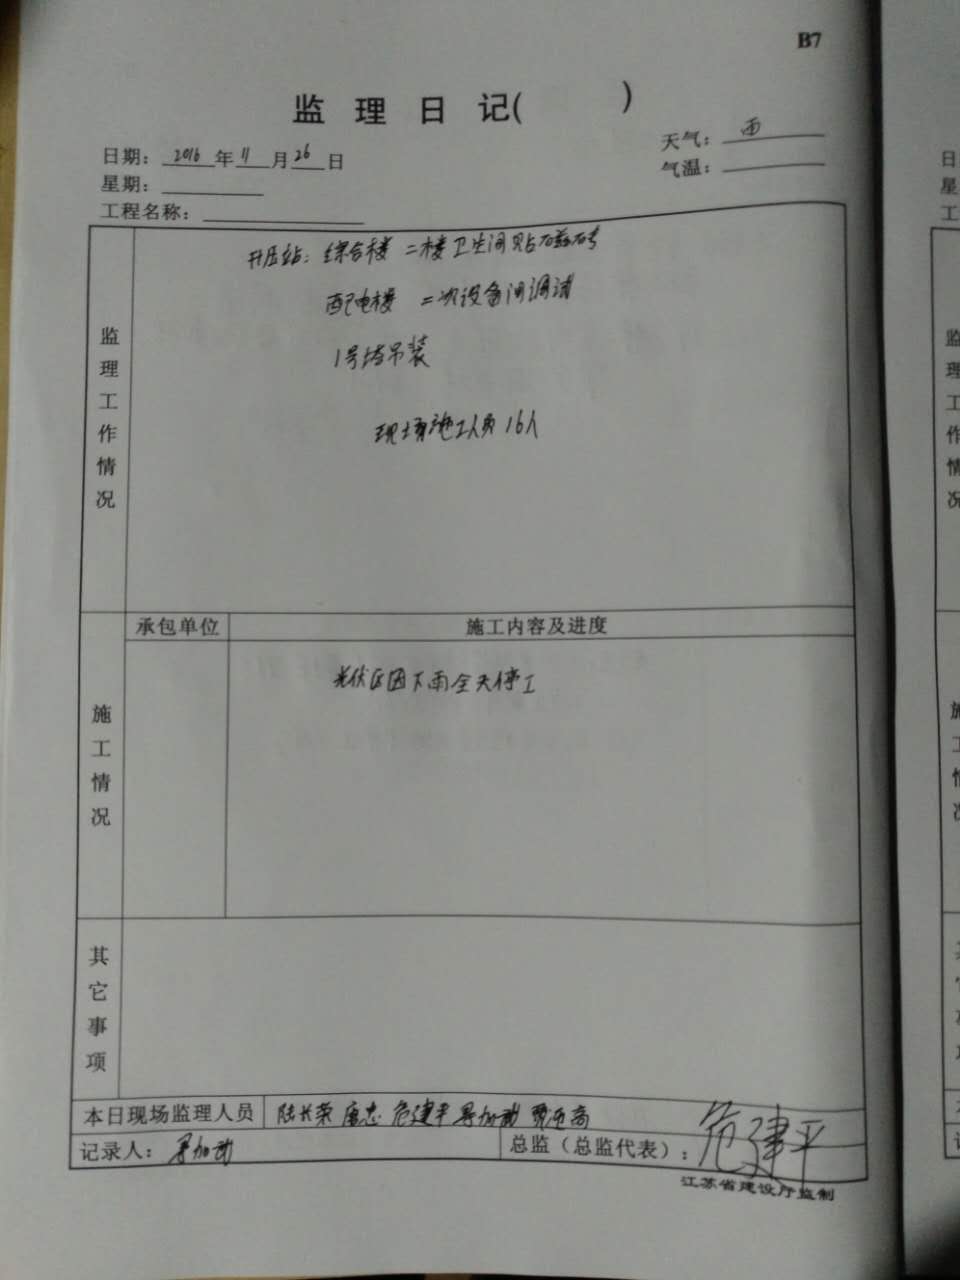 B7
监 理 日 记( )
日期：2016年11月26日
天气：雨
星期：
气温：
工程名称：
监理工作情况
升压站：综合楼 二楼卫生间贴磁砖
配电楼 二次设备间调试
1号塔吊装
现场施工人员16人
承包单位 施工内容及进度
施工情况
光伏区因下雨全天停工
其它事项
本日现场监理人员 陆长荣 唐忠 危建平
记录人：
总监（总监代表）：危建平
江苏省建设厅监制